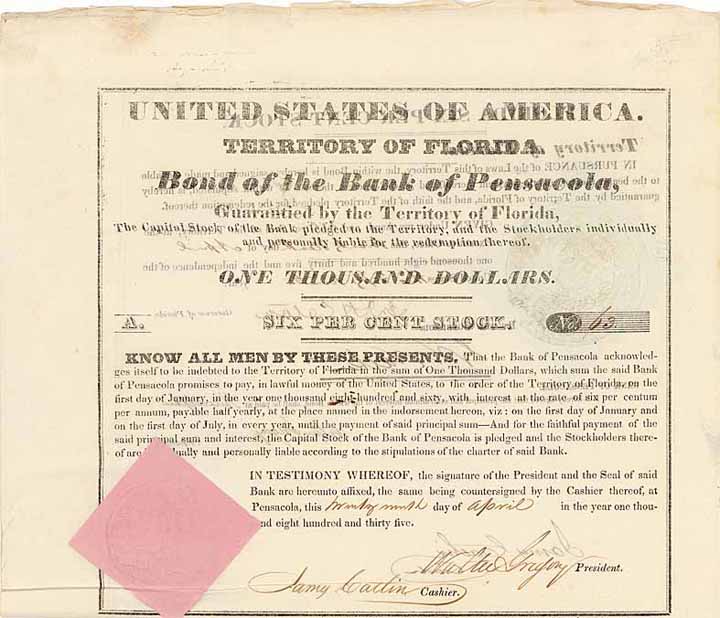 UNITED STATES OF AMERICA.
TERRITORY OF FLORIDA
Bond of the Bank of Pensacola,
Guarantied by the Territory of Florida,
The Capital Stock of the Bank pledged to the Territory, and the Stockholders individually
and personally liable for the redemption thereof.
ONE THOUSAND DOLLARS.
A. SIX PER CENT STOCK. No 63
KNOW ALL MEN BY THESE PRESENTS. That the Bank of Pensacola acknowled-
ges itself to be indebted to the Territory of Florida in the sum of One Thousand Dollars, which sum the said Bank
of Pensacola promises to pay, in lawful money of the United States, to the order of the Territory of Florida, on the
first day of January, in the year one thousand eight hundred and sixty, with interest at the rate of six per centum
per annum, payable half yearly, at the place named in the indorsement hereon, viz: on the first day of January and
on the first day of July, in every year, until the payment of said principal sum—And for the faithful payment of the
said principal sum and interest, the Capital Stock of the Bank of Pensacola is pledged and the Stockholders there-
of are individually and personally liable according to the stipulations of the charter of said Bank.
IN TESTIMONY WHEREOF, the signature of the President and the Seal of said
Bank are hereunto affixed, the same being countersigned by the Cashier thereof, at
Pensacola, this twenty ninth day of April in the year one thou-
sand eight hundred and thirty five.
Walter Gregory President.
Jamy Catlin Cashier.